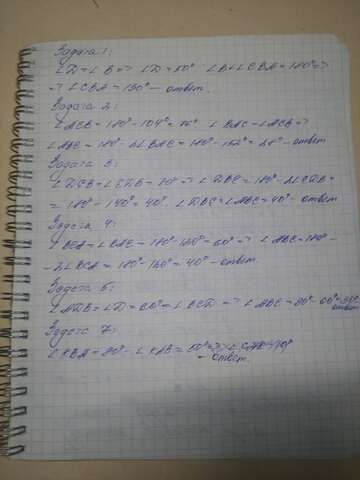 Задача 1:
∠D = ∠B => ∠D = 50° ∠B + ∠CBA = 180° =>
=> ∠CBA = 130° - ответ.
Задача 2:
∠ACB = 180° - 104° = 76° ∠BAC = ∠ACB =>
∠ABC = 180° - 2∠BAC = 180° - 152° = 28° - ответ
Задача 3:
∠DCB = ∠CDB = 70° => ∠DBC = 180° - 2∠CDB =
= 180° - 140° = 40° ∠DBC = ∠ABC = 40° - ответ
Задача 4:
∠BCA = ∠BAC = 180° - 120° = 60° => ∠ABC = 180° -
- 2∠BCA = 180° - 120° = 40° - ответ.
Задача 6:
∠ADB = ∠D = 60° = ∠BCD => ∠ABC = 90° - 60° = 30°
ответ
Задача 7:
∠KBA = 90° - ∠KAB =
- ответ